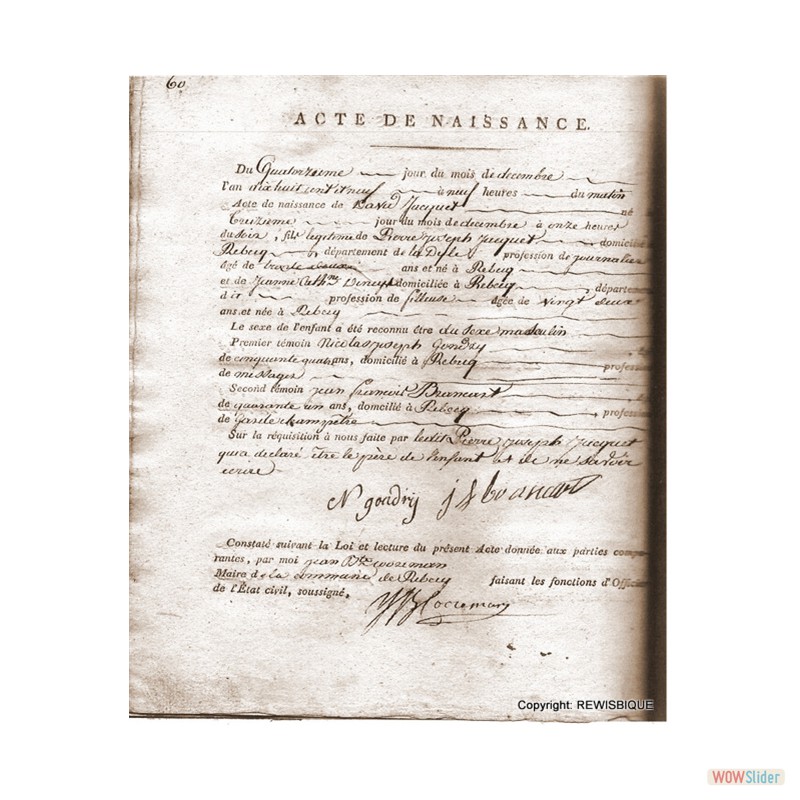 60
ACTE DE NAISSANCE.
Du Quatorzieme jour du mois de decembre
l'an dixhuit cent et neuf à neuf heures du matin
Acte de naissance de David Jacquet né
treizieme jour du mois de decembre à onze heures
du soir, fils legitime de Pierre joseph jacquet domicilié
Rebecq, département de la Dyle, profession de journalier
âgé de ans et né à Rebecq
et de Jeanne Cathne domiciliée à Rebecq, départem
d'ici profession de fileuse âgée de vingt deux
ans et née à Rebecq
Le sexe de l'enfant a été reconnu être du sexe masculin
Premier témoin Nicolas joseph Gondry
de cinquante quatre ans, domicilié à Rebecq profess
de messager
Second témoin jean francois Brancart
de quarante un ans, domicilié à Rebecq, profession
de Garde champetre
Sur la réquisition à nous faite par ledit Pierre joseph jacquet
qui a declaré être le père de l'enfant et de ne savoir
ecrire
N gondry j f brancart
Constaté suivant la Loi et lecture du présent Acte donnée aux parties compa-
rantes, par moi jean Bte
Maire de la commune de Rebecq faisant les fonctions d'Offici
de l'État civil, soussigné.
Copyright: REWISBIQUE
WOWSlider